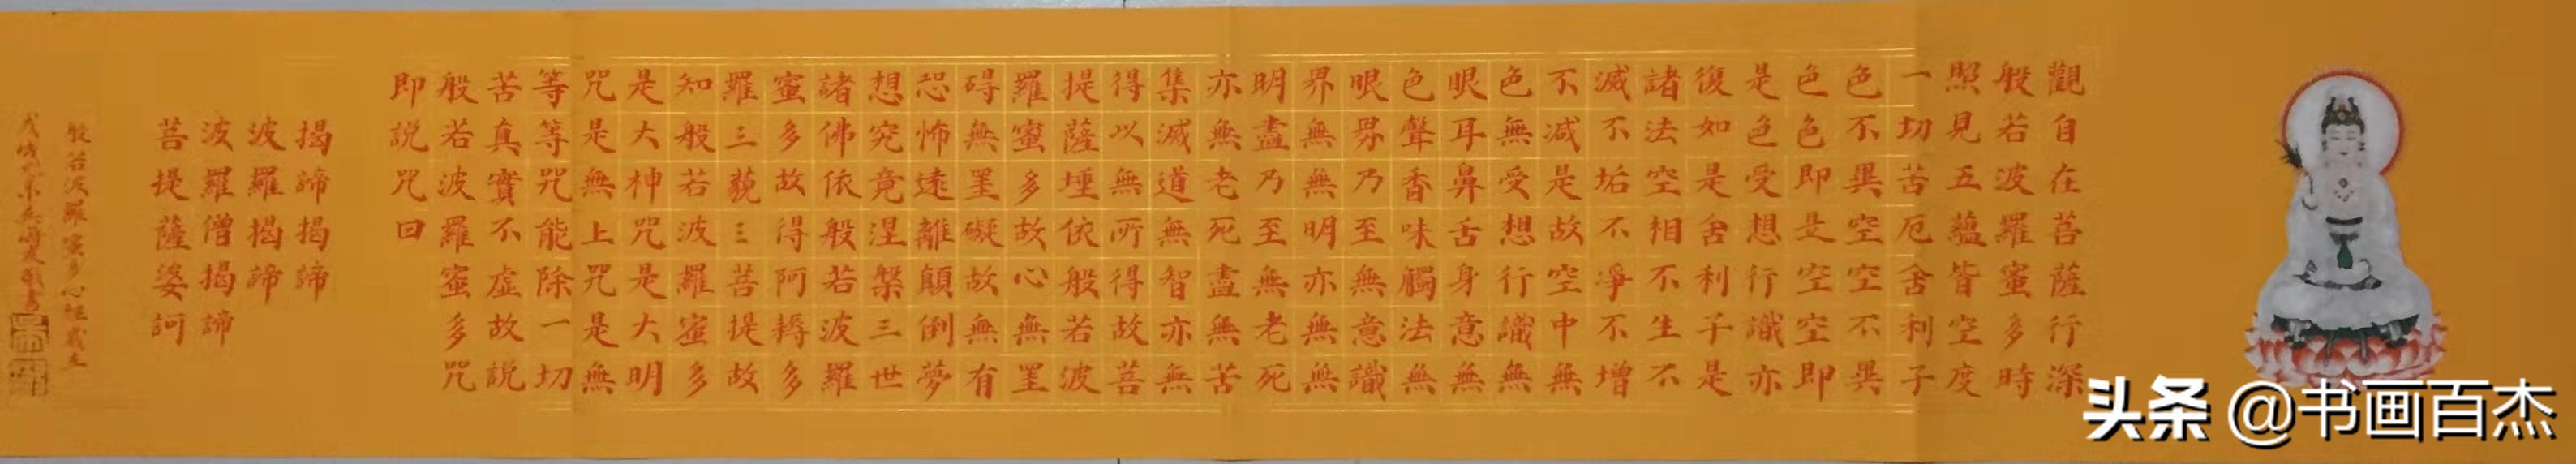 觀自在菩薩行深
般若波羅蜜多時
照見五蘊皆空度
一切苦厄舍利子
色不異空空不異
色色即是空空即
是色受想行識亦
復如是舍利子是
諸法空相不生不
滅不垢不淨不增
不減是故空中無
色無受想行識無
眼耳鼻舌身意無
色聲香味觸法無
眼界乃至無意識
界無無明亦無無
明盡乃至無老死
亦無老死盡無苦
集滅道無智亦無
得以無所得故菩
提薩埵依般若波
羅蜜多故心無罣
碍無罣礙故無有
恐怖遠離顛倒夢
想究竟涅槃三世
諸佛依般若波羅
蜜多故得阿耨多
羅三藐三菩提故
知般若波羅蜜多
是大神咒是大明
咒是無上咒是無
等等咒能除一切
苦真實不虛故說
般若波羅蜜多咒
即説咒曰
揭諦揭諦
波羅揭諦
波羅僧揭諦
菩提薩婆訶
般若波羅蜜多心經歲在
戊戌
头条 @书画百杰